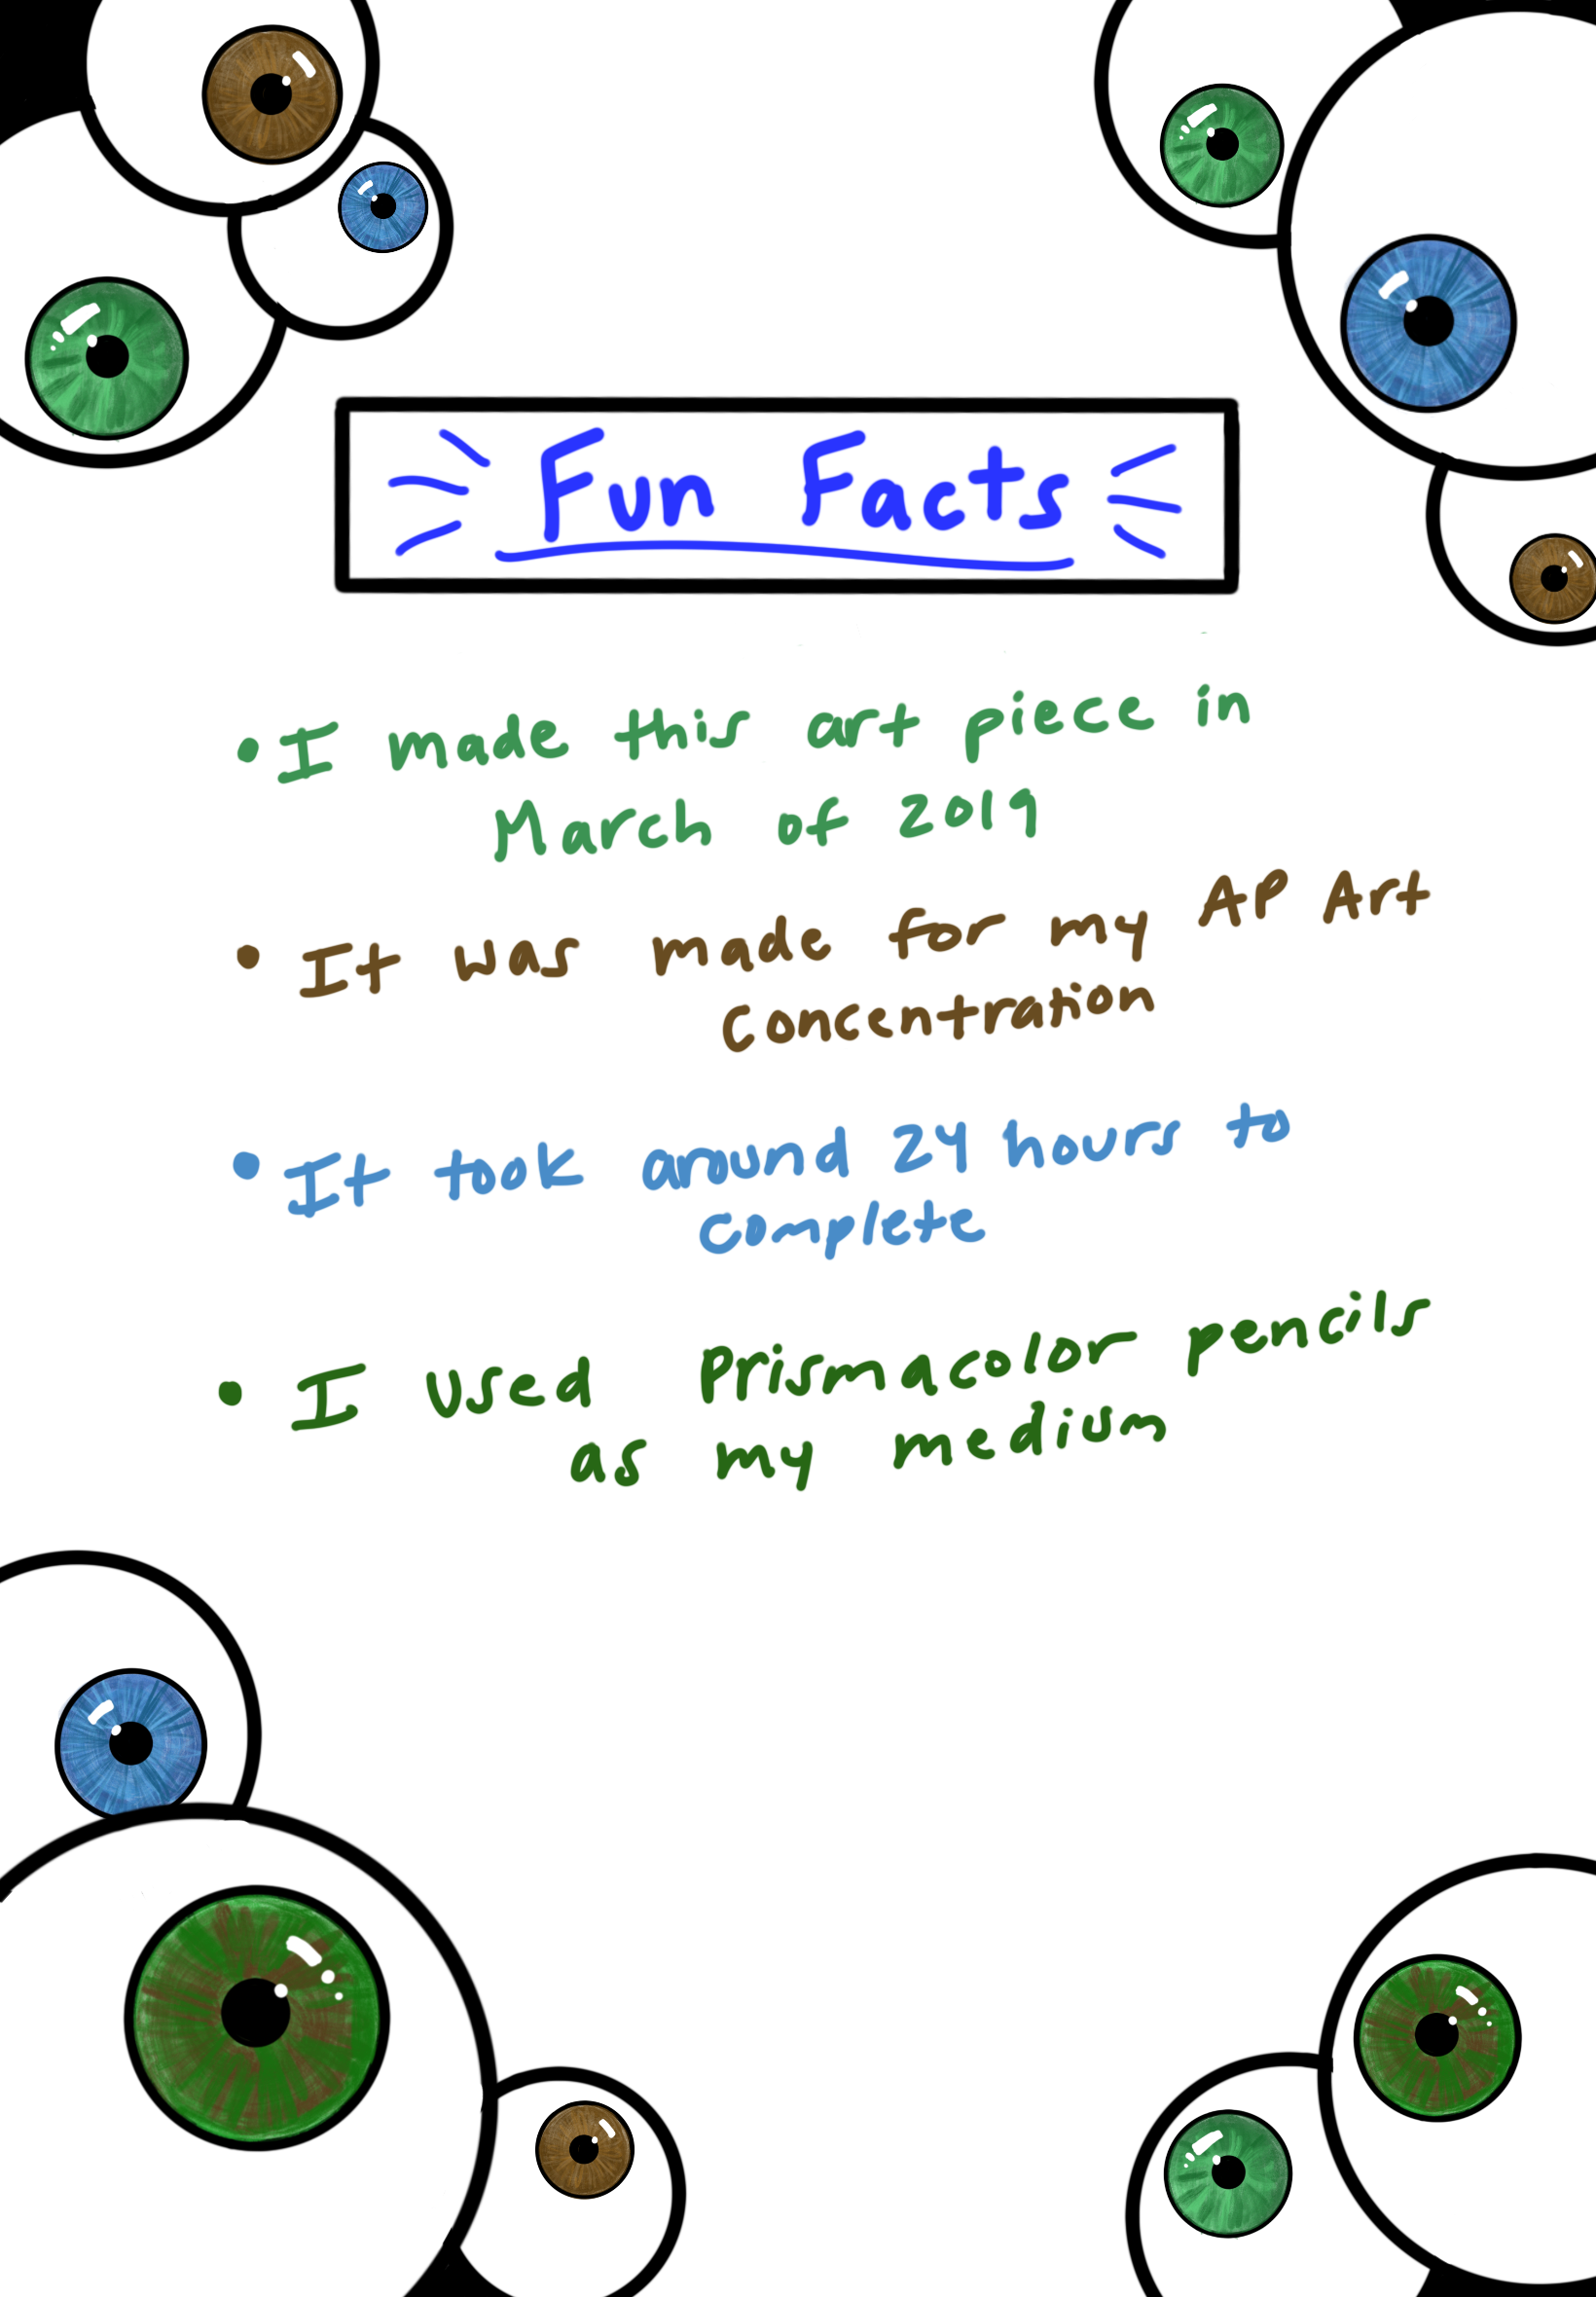 Fun Facts
• I made this art piece in
March of 2019
• It was made for my AP Art
Concentration
• It took around 24 hours to
complete
• I used Prismacolor pencils
as my medium